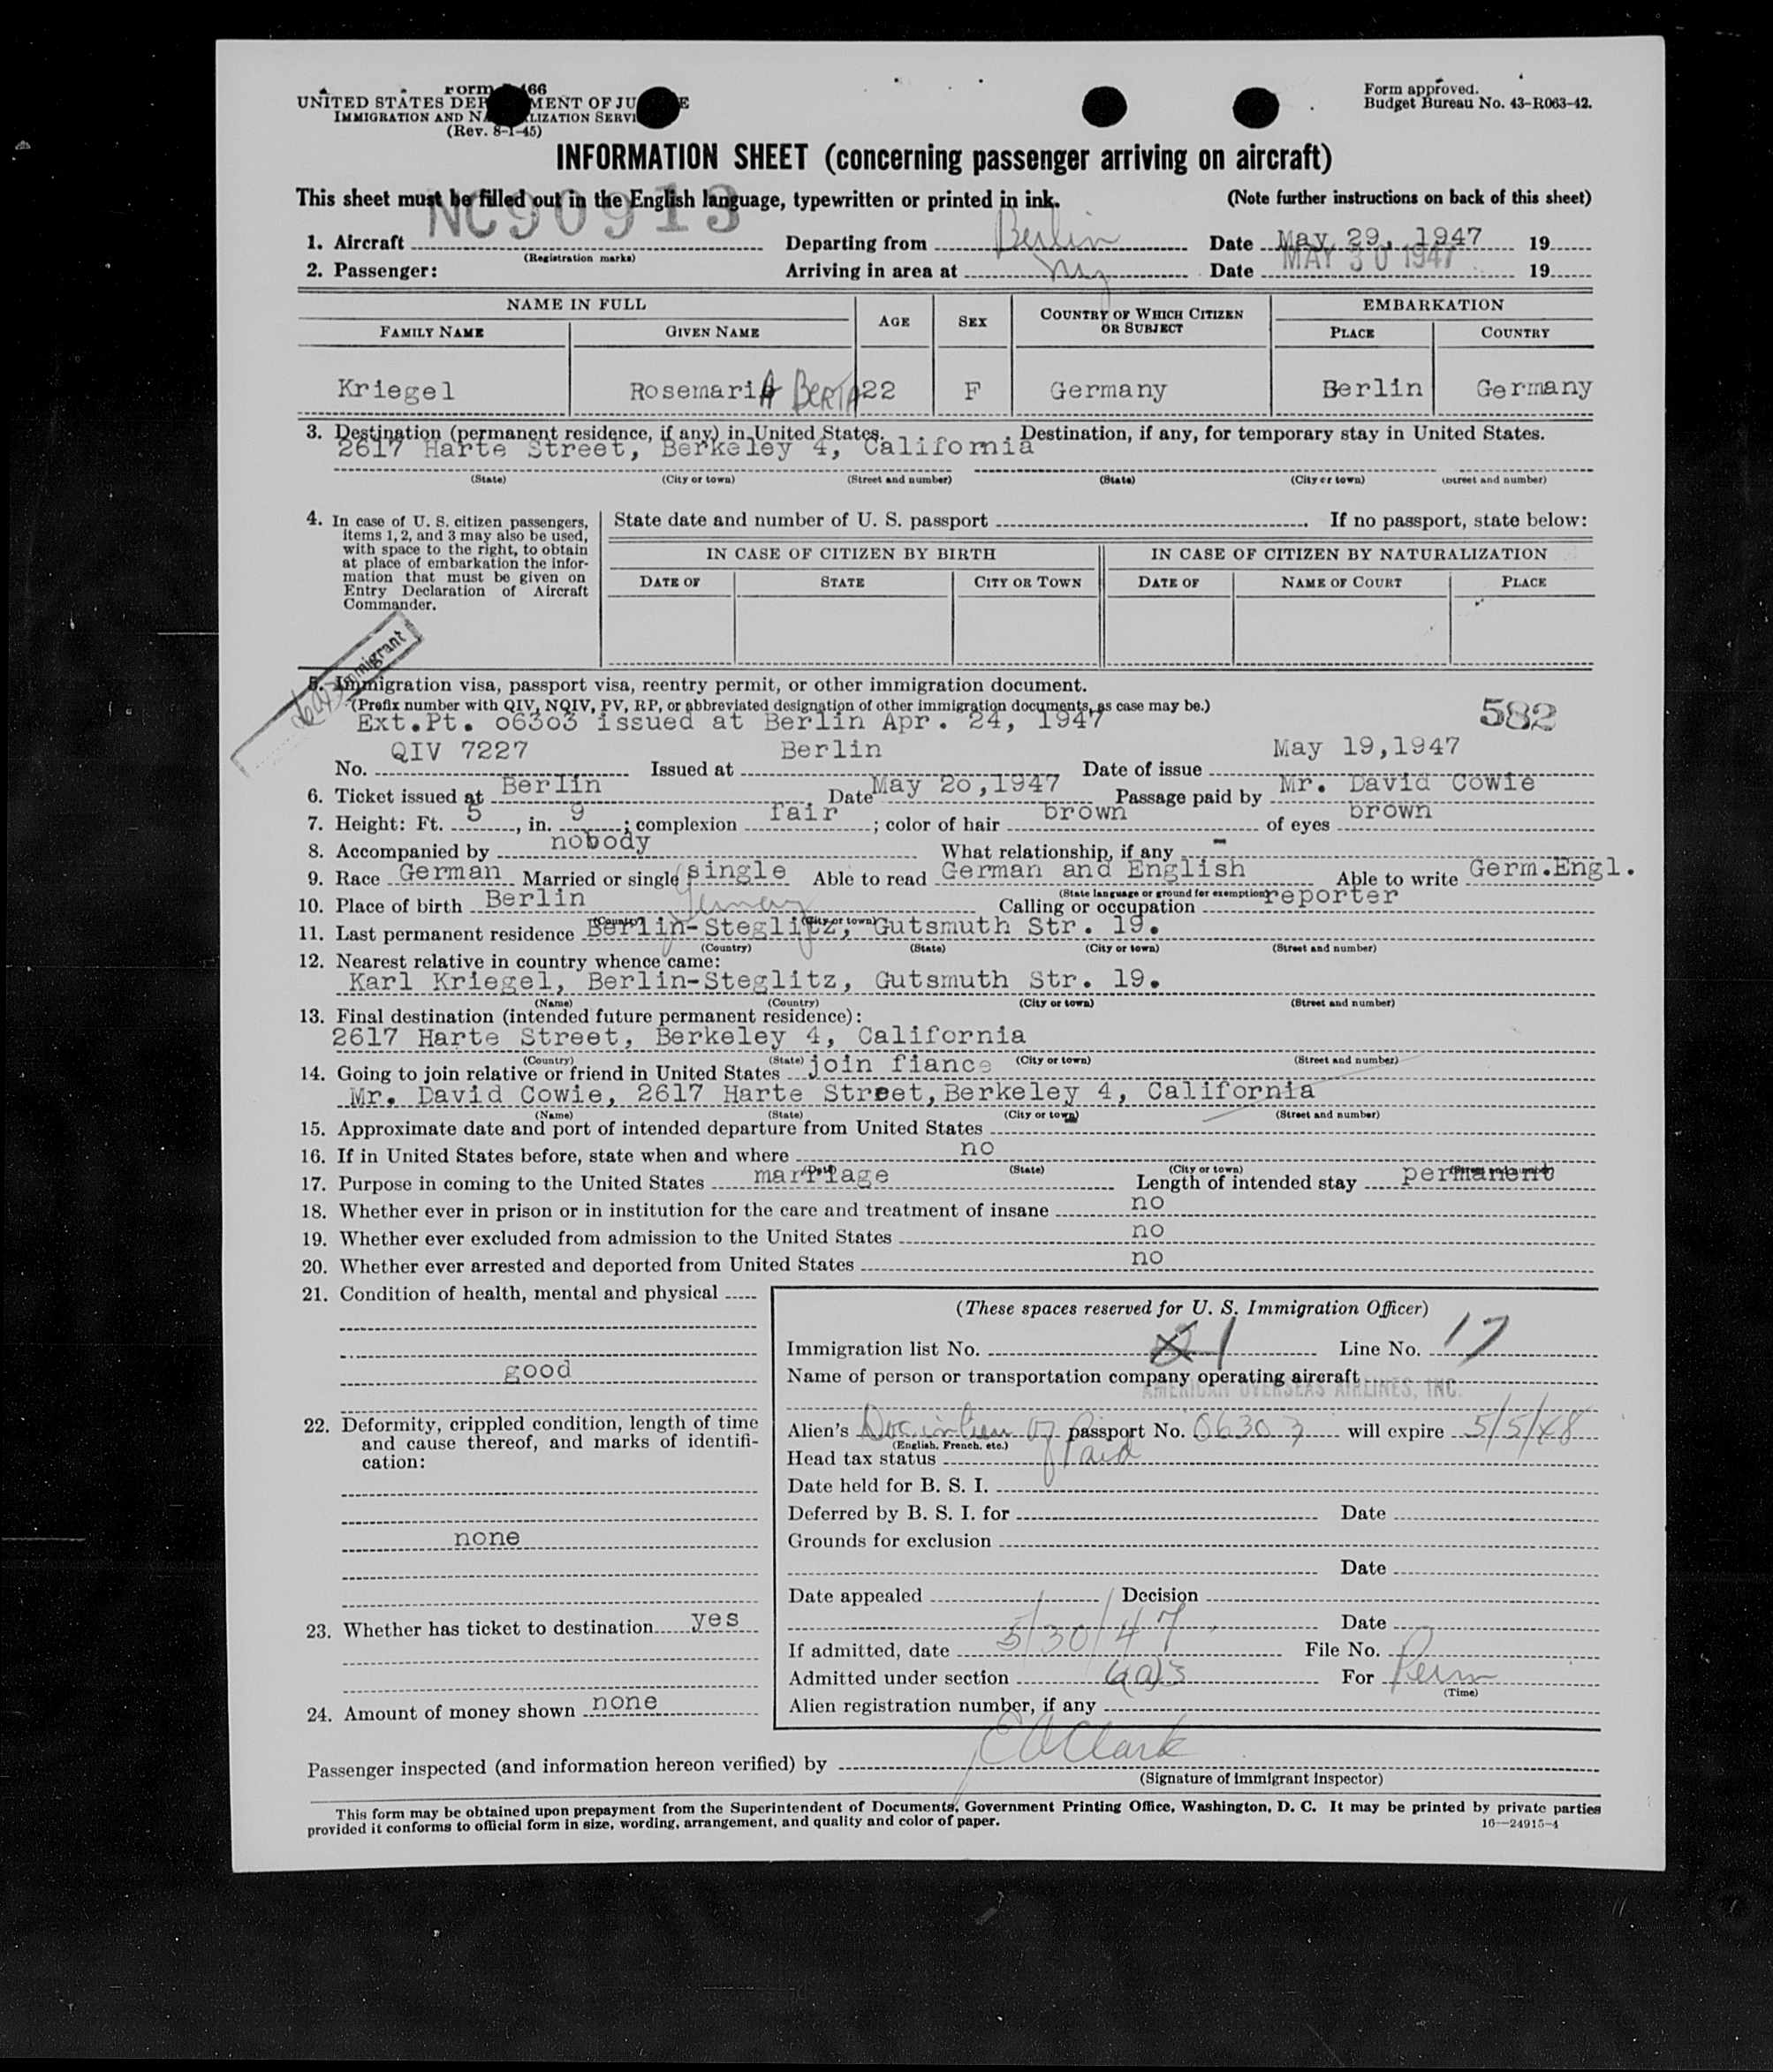 Form I-466
UNITED STATES DEPARTMENT OF JUSTICE
IMMIGRATION AND NATURALIZATION SERVICE
(Rev. 8-1-45)
Form approved.
Budget Bureau No. 43-R063-42.
INFORMATION SHEET (concerning passenger arriving on aircraft)
This sheet must be filled out in the English language, typewritten or printed in ink. (Note further instructions on back of this sheet)
NC90913
1. Aircraft Departing from Berlin Date May 29, 1947 19
(Registration marks)
2. Passenger: Arriving in area at NY Date MAY 30 1947 19
NAME IN FULL AGE SEX COUNTRY OF WHICH CITIZEN OR SUBJECT EMBARKATION
FAMILY NAME GIVEN NAME PLACE COUNTRY
Kriegel RosemariA BERTA 22 F Germany Berlin Germany
3. Destination (permanent residence, if any) in United States. Destination, if any, for temporary stay in United States.
2617 Harte Street, Berkeley 4, California
(State) (City or town) (Street and number) (State) (City or town) (Street and number)
4. In case of U. S. citizen passengers, items 1, 2, and 3 may also be used, with space to the right, to obtain at place of embarkation the information that must be given on Entry Declaration of Aircraft Commander.
State date and number of U. S. passport . If no passport, state below:
IN CASE OF CITIZEN BY BIRTH IN CASE OF CITIZEN BY NATURALIZATION
DATE OF STATE CITY OR TOWN DATE OF NAME OF COURT PLACE
Immigrant
5. Immigration visa, passport visa, reentry permit, or other immigration document.
(Prefix number with QIV, NQIV, PV, RP, or abbreviated designation of other immigration documents, as case may be.)
Ext.Pt. o63o3 issued at Berlin Apr. 24, 1947 582
No. QIV 7227 Issued at Berlin Date of issue May 19,1947
6. Ticket issued at Berlin Date May 2o,1947 Passage paid by Mr. David Cowie
7. Height: Ft. 5, in. 9; complexion fair; color of hair brown of eyes brown
8. Accompanied by nobody What relationship, if any -
9. Race German Married or single single Able to read German and English Able to write Germ.Engl.
(State language or ground for exemption)
10. Place of birth Berlin Germany Calling or occupation reporter
(Country) (City or town)
11. Last permanent residence Berlin-Steglitz, Gutsmuth Str. 19.
(Country) (State) (City or town) (Street and number)
12. Nearest relative in country whence came:
Karl Kriegel, Berlin-Steglitz, Gutsmuth Str. 19.
(Name) (Country) (City or town) (Street and number)
13. Final destination (intended future permanent residence):
2617 Harte Street, Berkeley 4, California
(Country) (State) (City or town) (Street and number)
14. Going to join relative or friend in United States join fiance
Mr. David Cowie, 2617 Harte Street, Berkeley 4, California
(Name) (State) (City or town) (Street and number)
15. Approximate date and port of intended departure from United States
16. If in United States before, state when and where no
(Date) (State) (City or town) (Street and number)
17. Purpose in coming to the United States marriage Length of intended stay permanent
18. Whether ever in prison or in institution for the care and treatment of insane no
19. Whether ever excluded from admission to the United States no
20. Whether ever arrested and deported from United States no
21. Condition of health, mental and physical
good
22. Deformity, crippled condition, length of time and cause thereof, and marks of identification:
none
23. Whether has ticket to destination yes
24. Amount of money shown none
(These spaces reserved for U. S. Immigration Officer)
Immigration list No. 1 Line No. 17
Name of person or transportation company operating aircraft
AMERICAN OVERSEAS AIRLINES, INC.
Alien's passport No. 06303 will expire 5/5/48
(English, French, etc.)
Head tax status Paid
Date held for B. S. I.
Deferred by B. S. I. for Date
Grounds for exclusion
Date
Date appealed Decision
Date
If admitted, date 5/30/47 File No.
Admitted under section 6(a)3 For Perm
(Time)
Alien registration number, if any
Passenger inspected (and information hereon verified) by E A Clark
(Signature of immigrant inspector)
This form may be obtained upon prepayment from the Superintendent of Documents, Government Printing Office, Washington, D. C. It may be printed by private parties
provided it conforms to official form in size, wording, arrangement, and quality and color of paper. 16—24915-4